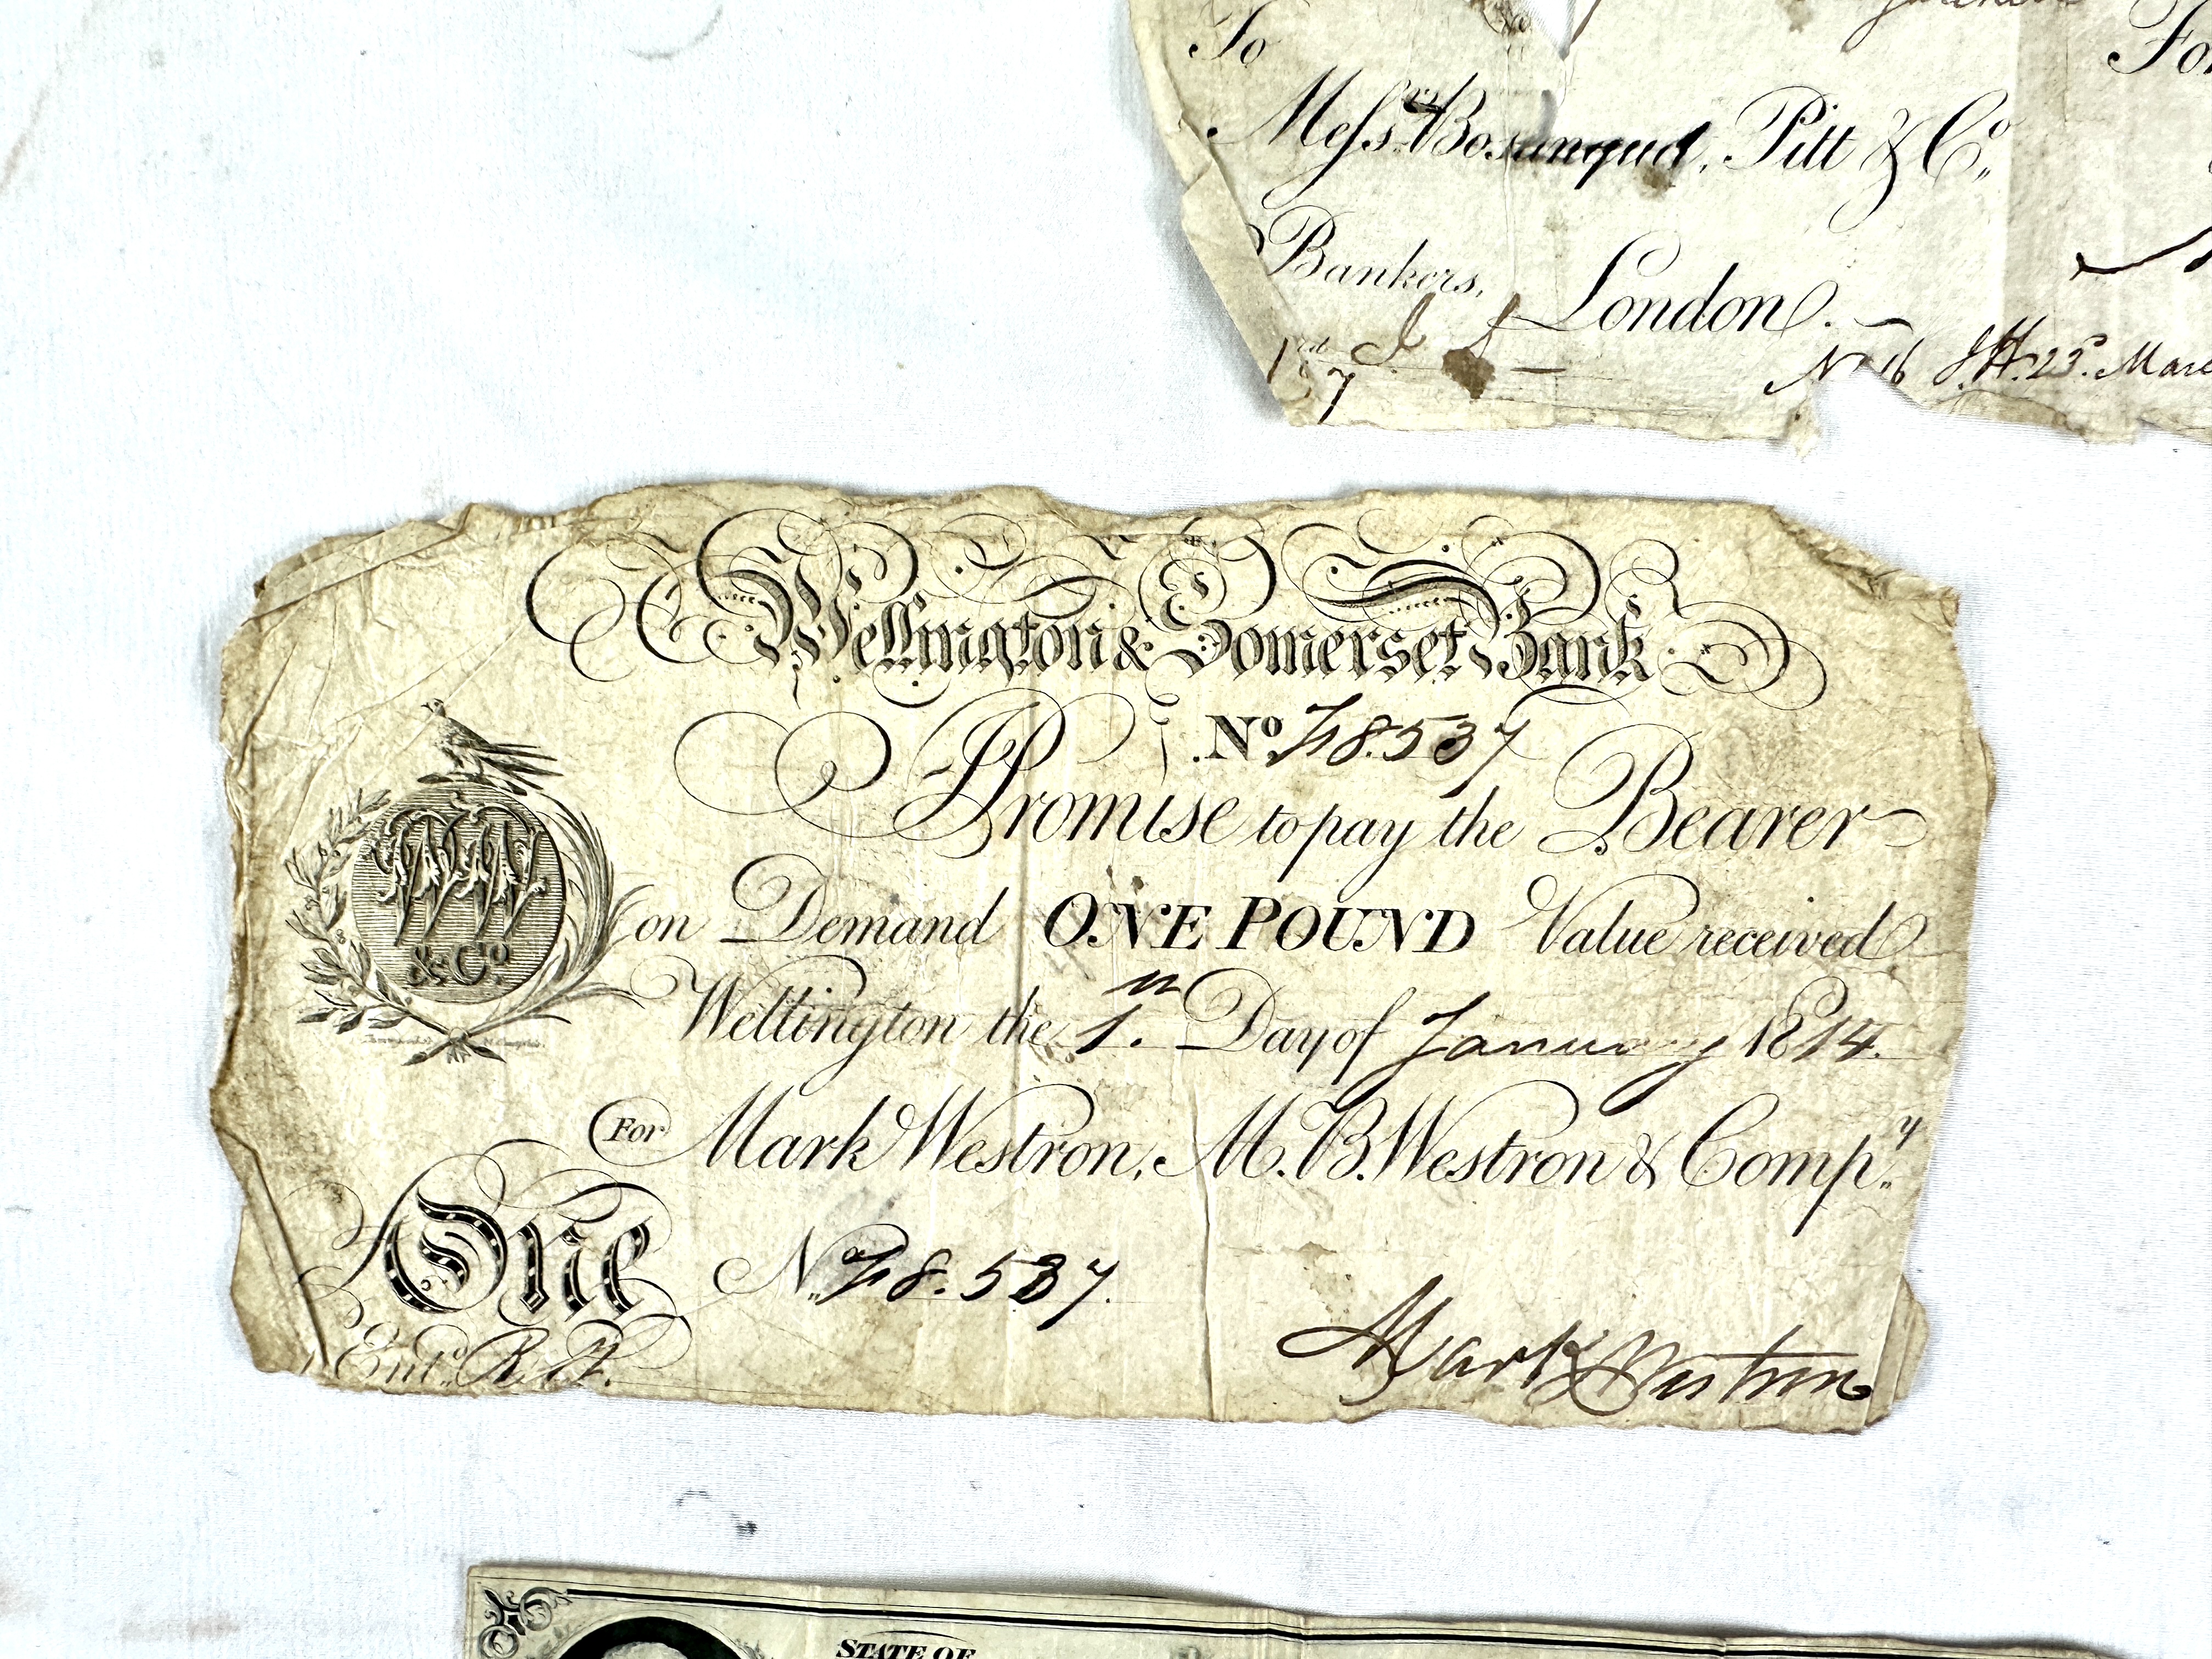 To
Messrs Bosanquet, Pitt & Co.
Bankers,
London.
25. Marc
Wellington & Somerset Bank
No. 48.537
I Promise to pay the Bearer
on Demand ONE POUND Value received
Wellington the 1st Day of January 1814.
For Mark Westron, M.B. Westron & Compy.
& Co.
One No. 48.537.
Entd.
Mark Westron
STATE OF